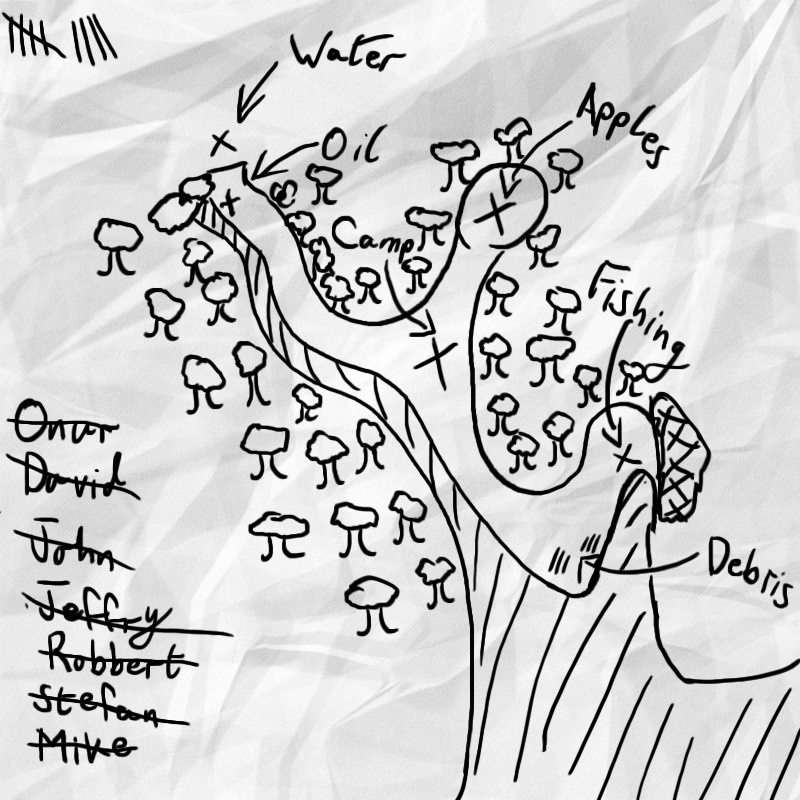 Water
Oil
Apples
Camp
Fishing
Onur
David
John
Jeffry
Robbert
Stefan
Mike
Debris